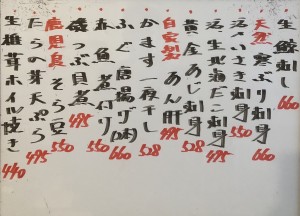 生鮫刺し 660
天然寒ぶり刺身
活〆いさき刺身 550
活〆北海だこ刺身 495
黄金あじ刺身 528
自家製あん肝 495
かます一夜干し 528
ふぐ唐揚げ 660
赤魚煮付け 550
磯つぶ貝煮 495
鹿児島そら豆 550
たらの芽天ぷら 495
生椎茸ホイル焼き 440